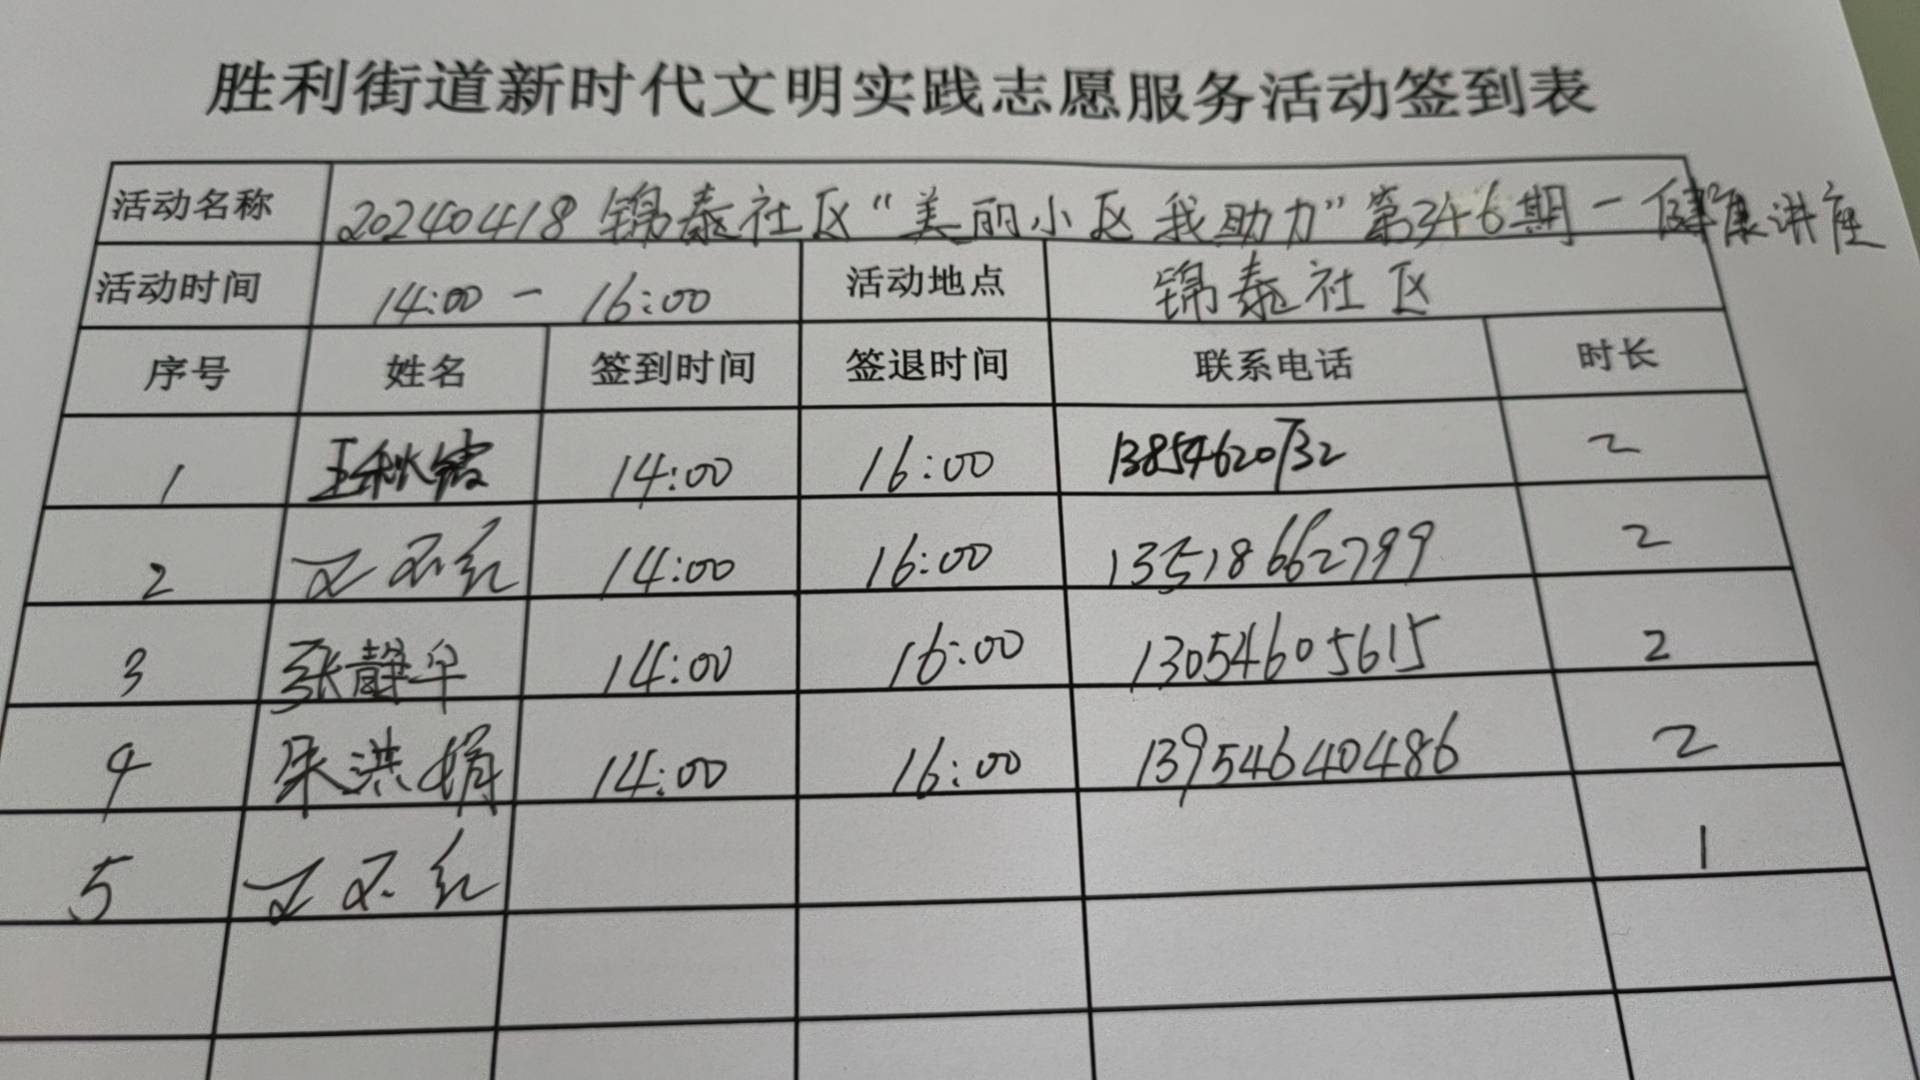 胜利街道新时代文明实践志愿服务活动签到表
活动名称 20240418 锦泰社区“美丽小区 我助力”第346期-健康讲座
活动时间 14:00 - 16:00 活动地点 锦泰社区
序号 姓名 签到时间 签退时间 联系电话 时长
1 王秋霞 14:00 16:00 13854620732 2
2 14:00 16:00 13518662799 2
3 张静华 14:00 16:00 13054605615 2
4 朱洪娟 14:00 16:00 13954640486 2
5 1